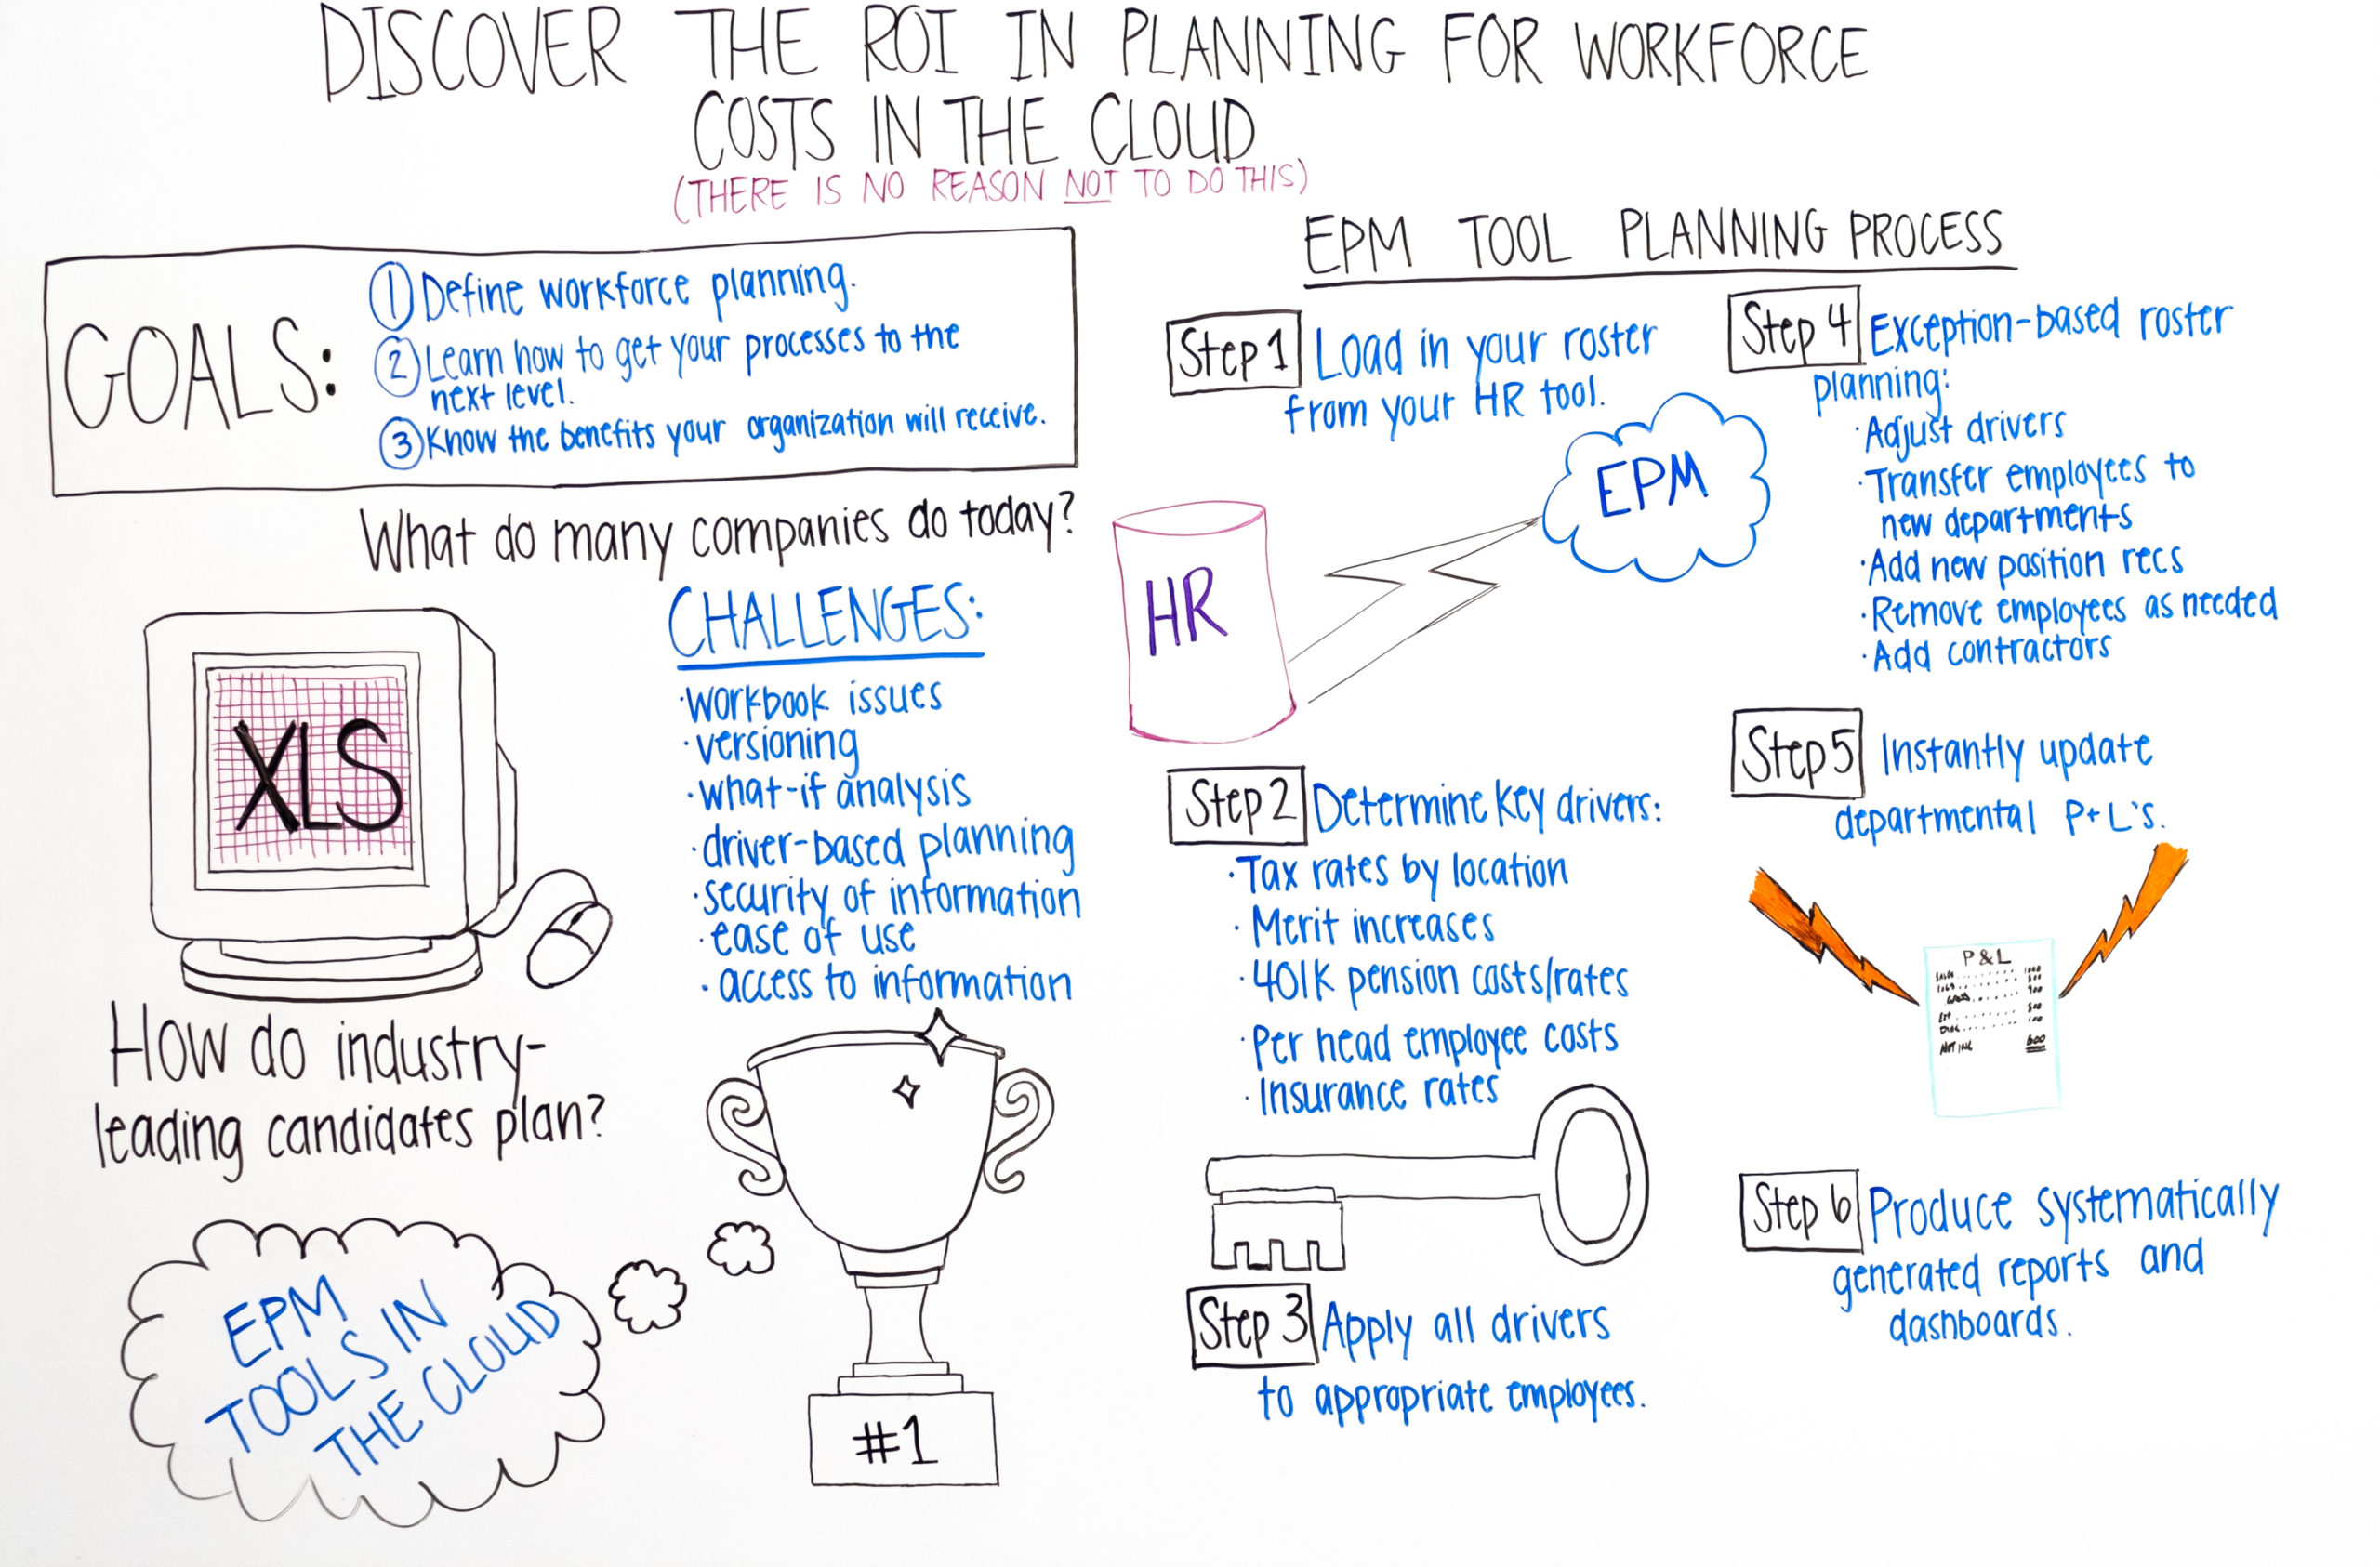 DISCOVER THE ROI IN PLANNING FOR WORKFORCE
COSTS IN THE CLOUD
(THERE IS NO REASON NOT TO DO THIS)
GOALS:
1 Define workforce planning.
2 Learn how to get your processes to the
next level.
3 Know the benefits your organization will receive.
What do many companies do today?
XLS
CHALLENGES:
·workbook issues
·versioning
·what-if analysis
·driver-based planning
·security of information
·ease of use
·access to information
How do industry-
leading candidates plan?
EPM
TOOLS IN
THE CLOUD
#1
EPM TOOL PLANNING PROCESS
Step 1 Load in your roster
from your HR tool.
HR
EPM
Step 2 Determine key drivers:
·Tax rates by location
·Merit increases
·401K pension costs/rates
·Per head employee costs
·Insurance rates
Step 3 Apply all drivers
to appropriate employees.
Step 4 Exception-based roster
planning:
·Adjust drivers
·Transfer employees to
new departments
·Add new position recs
·Remove employees as needed
·Add contractors
Step 5 Instantly update
departmental P+L's.
P&L
600
Step 6 Produce systematically
generated reports and
dashboards.